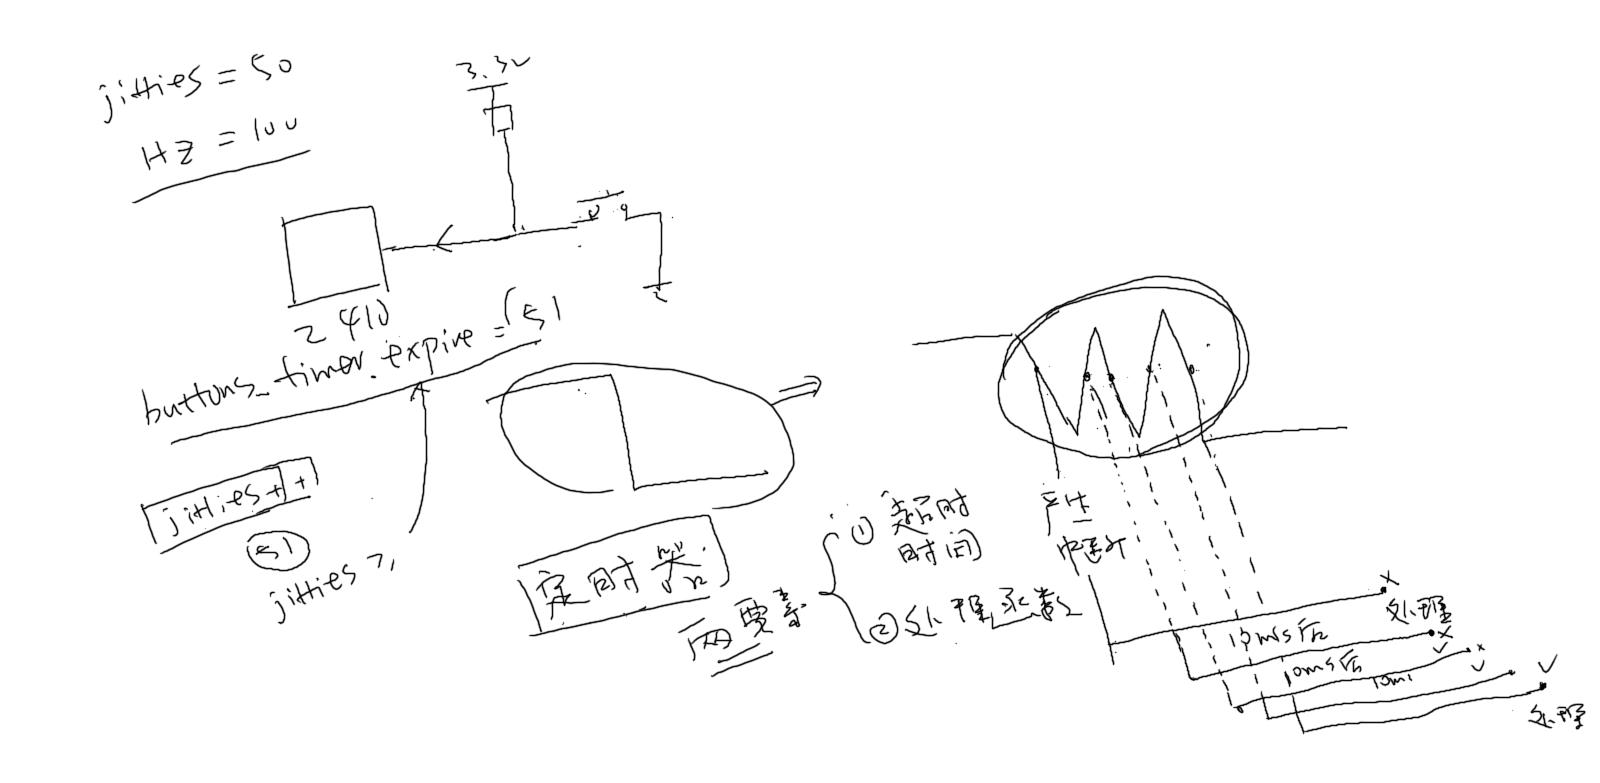 jiffies = 50
HZ = 100
3.3V
2410
buttons_timer.expire = 51
jiffies++
51
jiffies >,
定时器
两要素
① 超时
时间
② 处理函数
产生
中断
10ms后
处理
10ms后
10ms
处理